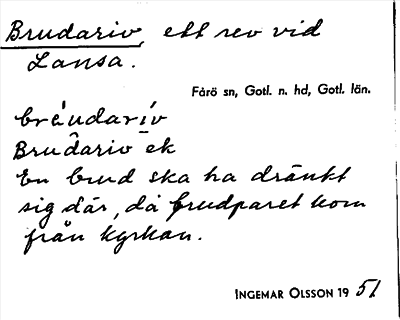 Brudariv, ett rev vid
Lansa.
Fårö sn, Gotl. n. hd, Gotl. län.
bréudarív
Brudariv ek
En brud ska ha dränkt
sig där, då brudparet kom
från kyrkan.
INGEMAR OLSSON 19 51